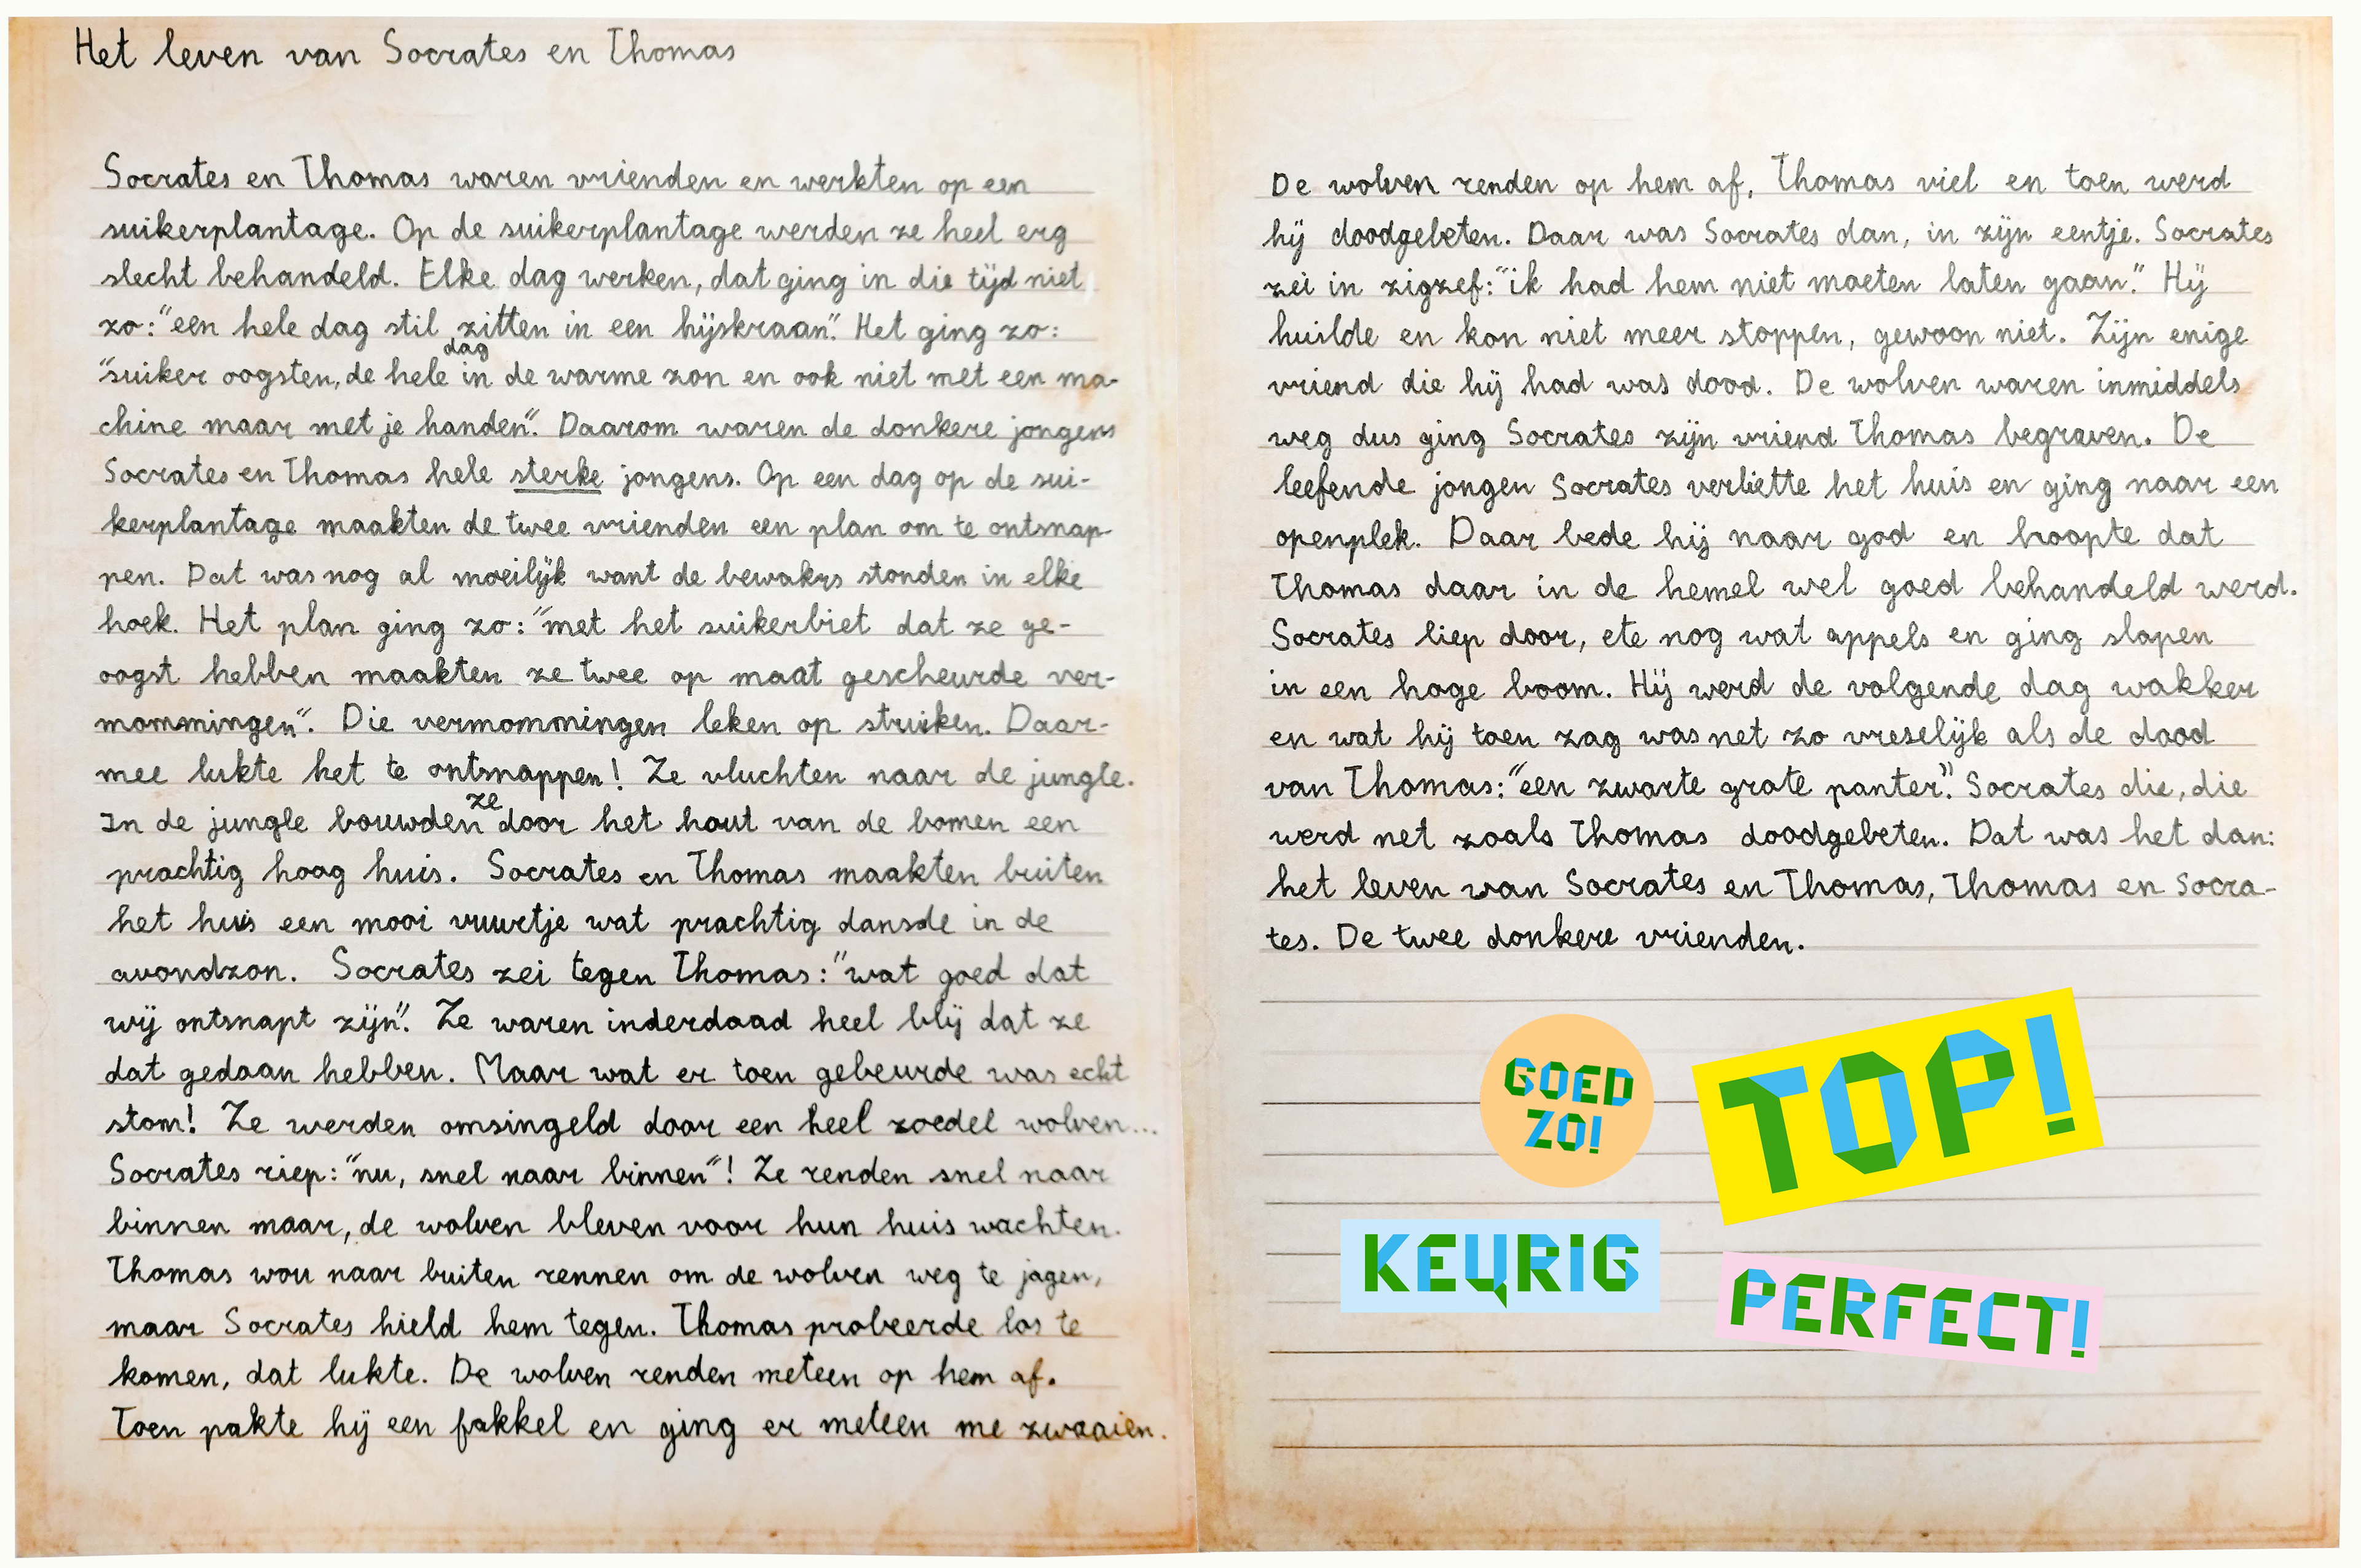 Het leven van Socrates en Thomas
Socrates en Thomas waren vrienden en werkten op een
suikerplantage. Op de suikerplantage werden ze heel erg
slecht behandeld. Elke dag werken, dat ging in die tijd niet
zo: "een hele dag stil zitten in een hijskraan". Het ging zo:
"suiker oogsten, de hele dag in de warme zon en ook niet met een ma-
chine maar met je handen". Daarom waren de donkere jongens
Socrates en Thomas hele sterke jongens. Op een dag op de sui-
kerplantage maakten de twee vrienden een plan om te ontsnap-
pen. Dat was nog al moeilijk want de bewakrs stonden in elke
hoek. Het plan ging zo: "met het suikerbiet dat ze ge-
oogst hebben maakten ze twee op maat gescheurde ver-
mommingen". Die vermommingen leken op struiken. Daar-
mee lukte het te ontsnappen! Ze vluchten naar de jungle.
In de jungle bouwden ze door het hout van de bomen een
prachtig hoog huis. Socrates en Thomas maakten buiten
het huis een mooi vuurtje wat prachtig dansde in de
avondzon. Socrates zei tegen Thomas: "wat goed dat
wij ontsnapt zijn". Ze waren inderdaad heel blij dat ze
dat gedaan hebben. Maar wat er toen gebeurde was echt
stom! Ze werden omsingeld door een heel zoedel wolven...
Socrates riep: "nu, snel naar binnen"! Ze renden snel naar
binnen maar, de wolven bleven voor hun huis wachten.
Thomas wou naar buiten rennen om de wolven weg te jagen,
maar Socrates hield hem tegen. Thomas probeerde los te
komen, dat lukte. De wolven renden meteen op hem af.
Toen pakte hij een fakkel en ging er meteen me zwaaien.
De wolven renden op hem af, Thomas viel en toen werd
hij doodgebeten. Daar was Socrates dan, in zijn eentje. Socrates
zei in zigzef: "ik had hem niet moeten laten gaan." Hij
huilde en kon niet meer stoppen, gewoon niet. Zijn enige
vriend die hij had was dood. De wolven waren inmiddels
weg dus ging Socrates zijn vriend Thomas begraven. De
leefende jongen Socrates verliette het huis en ging naar een
openplek. Daar bede hij naar god en hoopte dat
Thomas daar in de hemel wel goed behandeld werd.
Socrates liep door, ete nog wat appels en ging slapen
in een hoge boom. Hij werd de volgende dag wakker
en wat hij toen zag was net zo vreselijk als de dood
van Thomas: "een zwarte grote panter". Socrates die, die
werd net zoals Thomas doodgebeten. Dat was het dan:
het leven van Socrates en Thomas, Thomas en Socra-
tes. De twee donkere vrienden.
GOED
ZO!
TOP!
KEURIG
PERFECT!